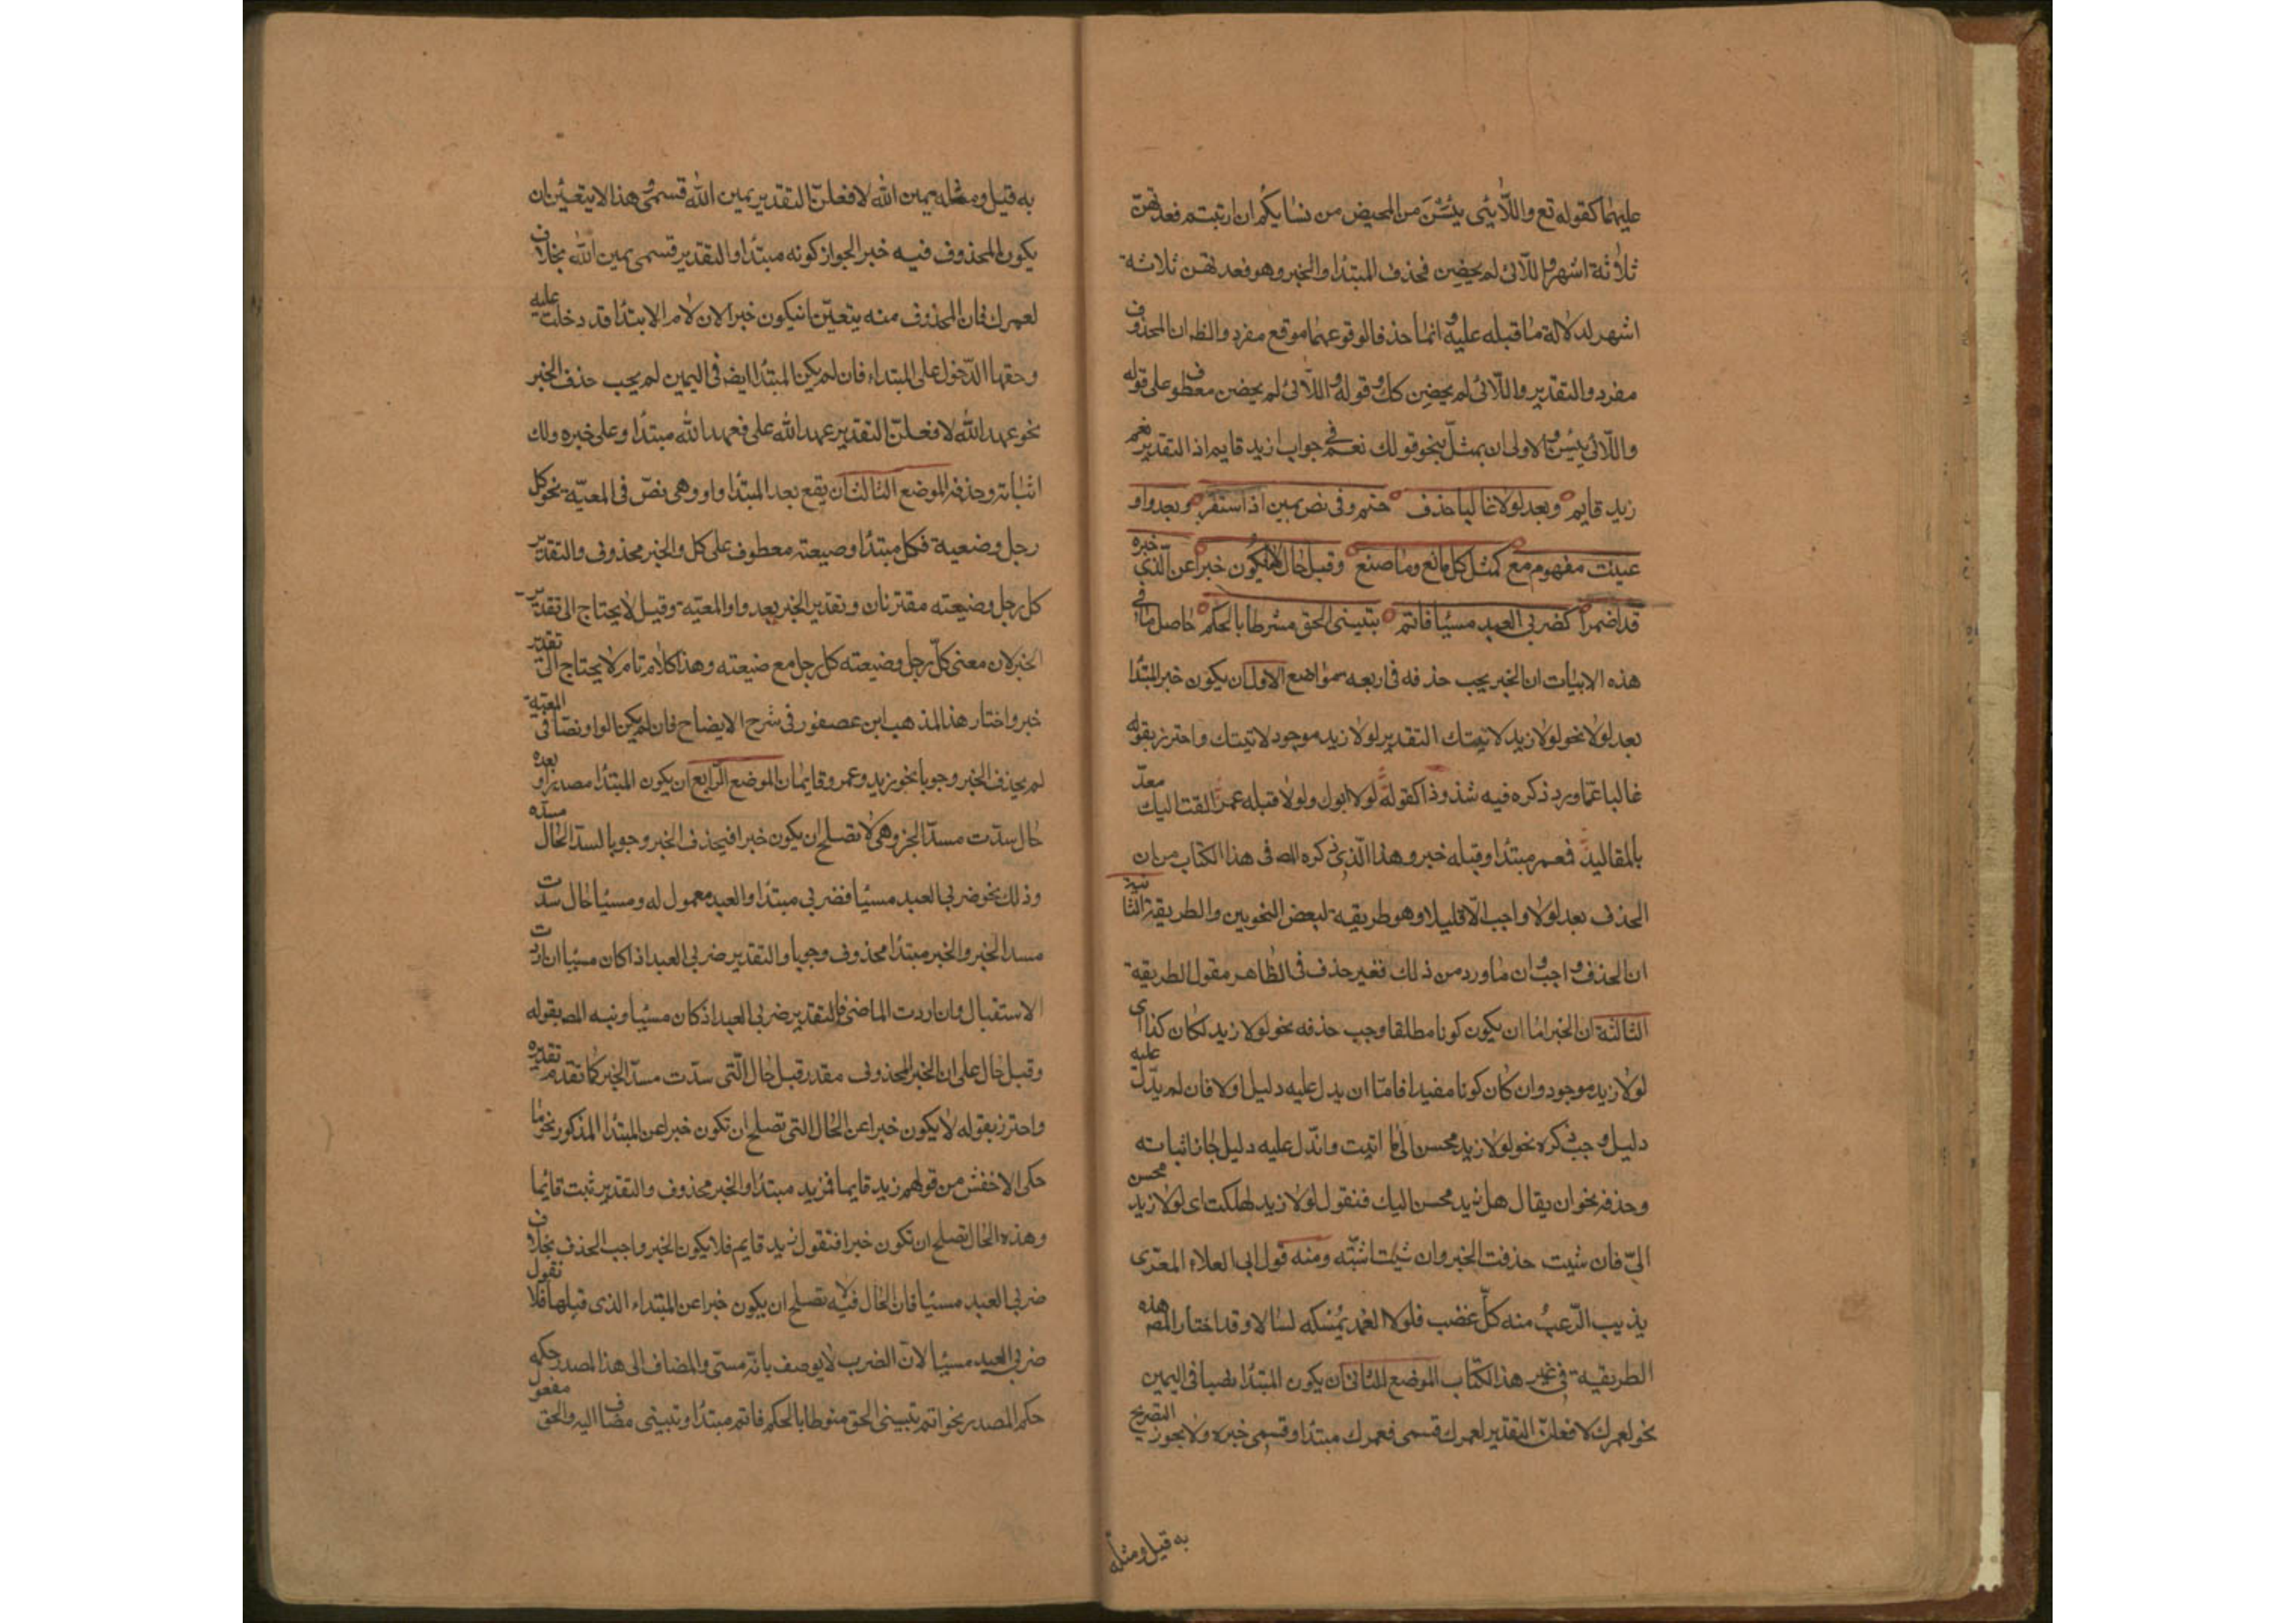 عليهما كقوله تع واللّايئى يئسْنَ من المحيض من نسايكم ان ارتبتم فعدتهنّ
ثلاثة اشهر واللّائى لم يحضِن فحذف المبتدأ والخبر وهو فعدتهن ثلاثة
اشهر لدلالة ما قبله عليه وانما حذفا لوقوعهما موقع مفرد والظ ان المحذوف
مفرد والتقدير واللّائى لم يحضِن كك وقوله واللّائى لم يحضن معطوف على قوله
واللّائى يئسن والاولى ان يمثلّ بنحو قولك نعم فى جواب ازيد قايم اذ التقدير نعم
زيد قايم وبعد لولا غالبا حذف حتم وفى نص يمين اذا استقر وبعد واو
عينت مفهوم مع كمثل كل صانع وما صنع وقبل حال لا يكون خبرا عن الّذى خبره
قد اضمرا كضربى العبد مسيئا فاتم بتيينى الحق مشرطا بالحكم حاصل ما فى
هذه الابيات ان الخبر يجب حذفه فى اربعه مواضع الاول ان يكون خبر المبتدأ
بعد لولا نحو لولا زيد لاتيتك التقدير لولا زيد موجود لاتيتك واحترز بقوله
غالبا عمّا ورد ذكره فيه شذوذا كقوله لولا ابوك ولولا قبله عمر القت اليك معدّ
بالمقاليد فعمر مبتدأ وقبله خبر وهذا الّذى ذكره المص فى هذا الكتاب من ان
الحذف بعد لولا واجب الّا قليلا وهو طريقة لبعض النحويين والطريقة الثانية
ان الحذف واجب وان ما ورد من ذلك فغير حذف فى الظاهر مقول الطريقة
الثالثة ان الخبر امّا ان يكون كونا مطلقا وجب حذفه نحو لولا زيد لكان كذا اى
لولا زيد موجود وان كان كونا مفيدا فامّا ان يدل عليه دليل اولا فان لم يدّل عليه
دليل وجب ذكره نحو لولا زيد محسن الىّ ما اتيت وان دّل عليه دليل جاز اثباته
وحذفه نحو ان يقال هل زيد محسن اليك فتقول لولا زيد لهلكت اى لولا زيد محسن
الىّ فان شيت حذفت الخبر وان شيت اثبتّه ومنه قول ابى العلاء المعرّى
يذيب الرّعبُ منه كلّ غضب فلولا الغمد يُمسكه لسالا وقد اختار المص هذه
الطريقة فى غير هذا الكتاب الموضع الثانى ان يكون المبتدأ نصبا فى اليمين
نحو لعمرك لافعلنّ التقدير لعمرك قسمى فعمرك مبتدأ وقسمى خبره ولا يجوز التصريح
به قيل ومثله
به قيل ومثله يمين الله لافعلنّ التقدير يمين الله قسمى وهذا لا يتعيّن ان
يكون المحذوف فيه خبر الجواز كونه مبتدأ والتقدير قسمى يمين الله بخلاف
لعمرك فان المحذوف منه يتعيّن ان يكون خبرا لان لام الابتدأ قد دخلت عليه
وحقها الدّخول على المبتداء فان لم يكن المبتدأ ايضه فى اليمين لم يجب حذف الخبر
نحو عهد الله لافعلنّ التقدير عهد الله على فعهد الله مبتدأ وعلى خبره ولك
اثباته وحذفه الموضع الثالث ان يقع بعد المبتدأ واو وهى نصّ فى المعيّة نحو كل
رجل وضعية فكل مبتدأ وضيعته معطوف على كل والخبر محذوف والتقدير
كل رجل وضيعته مقترنان وتقدير الخبر بعد واو المعيّة وقيل لا يحتاج الى تقدير
الخبر لان معنى كلّ رجل وضيعته كل رجل مع ضيعته وهذا كلام تام لا يحتاج الى تقدير
خبر واختار هذا المذهب ابن عصفور فى شرح الايضاح فان لم يكن الواو نصّا فى المعيّة
لم يحذف الخبر وجوبا نحو زيد وعمرو قايمان الموضع الرّابع ان يكون المبتدأ مصدرا وبعده
حال سدّت مسدّ الخبر وهى لا تصلح ان يكون خبرا فيحذف الخبر وجوبا لسدّ الحال مسدّه
وذلك نحو ضربى العبد مسيئا فضربى مبتدأ والعبد معمول له ومسيئا حال سدّت
مسد الخبر والخبر مبتدأ محذوف وجوبا والتقدير ضربى العبد اذا كان مسيئا ان اردت
الاستقبال وان اردت الماضى فالتقدير ضربى العبد اذ كان مسيئا ونبه المص بقوله
وقبل حال على ان الخبر المحذوف مقدر قبل حال الّتى سدّت مسدّ الخبر كما تقدم تقديره
واحترز بقوله لا يكون خبرا عن الحال التى تصلح ان تكون خبرا عن المبتدأ المذكور نحو ما
حكى الاخفش من قولهم زيد قايما فزيد مبتدأ والخبر محذوف والتقدير ثبت قائما
وهذه الحال تصلح ان تكون خبرا فتقول زيد قايم فلا يكون الخبر واجب الحذف بخلاف
ضربى العبد مسيئا فان الحال فيه لا تصلح ان يكون خبرا عن المبتداء الذى قبلها فلا تقول
ضربى العبد مسيئا لان الضرب لا يوصف بانّه مسئ والمضاف الى هذا المصدر حكمه
حكم المصدر نحو اتم تبيينى الحق منوطا بالحكم فاتم مبتدأ وتبيينى مضاف اليه والحق مفعول